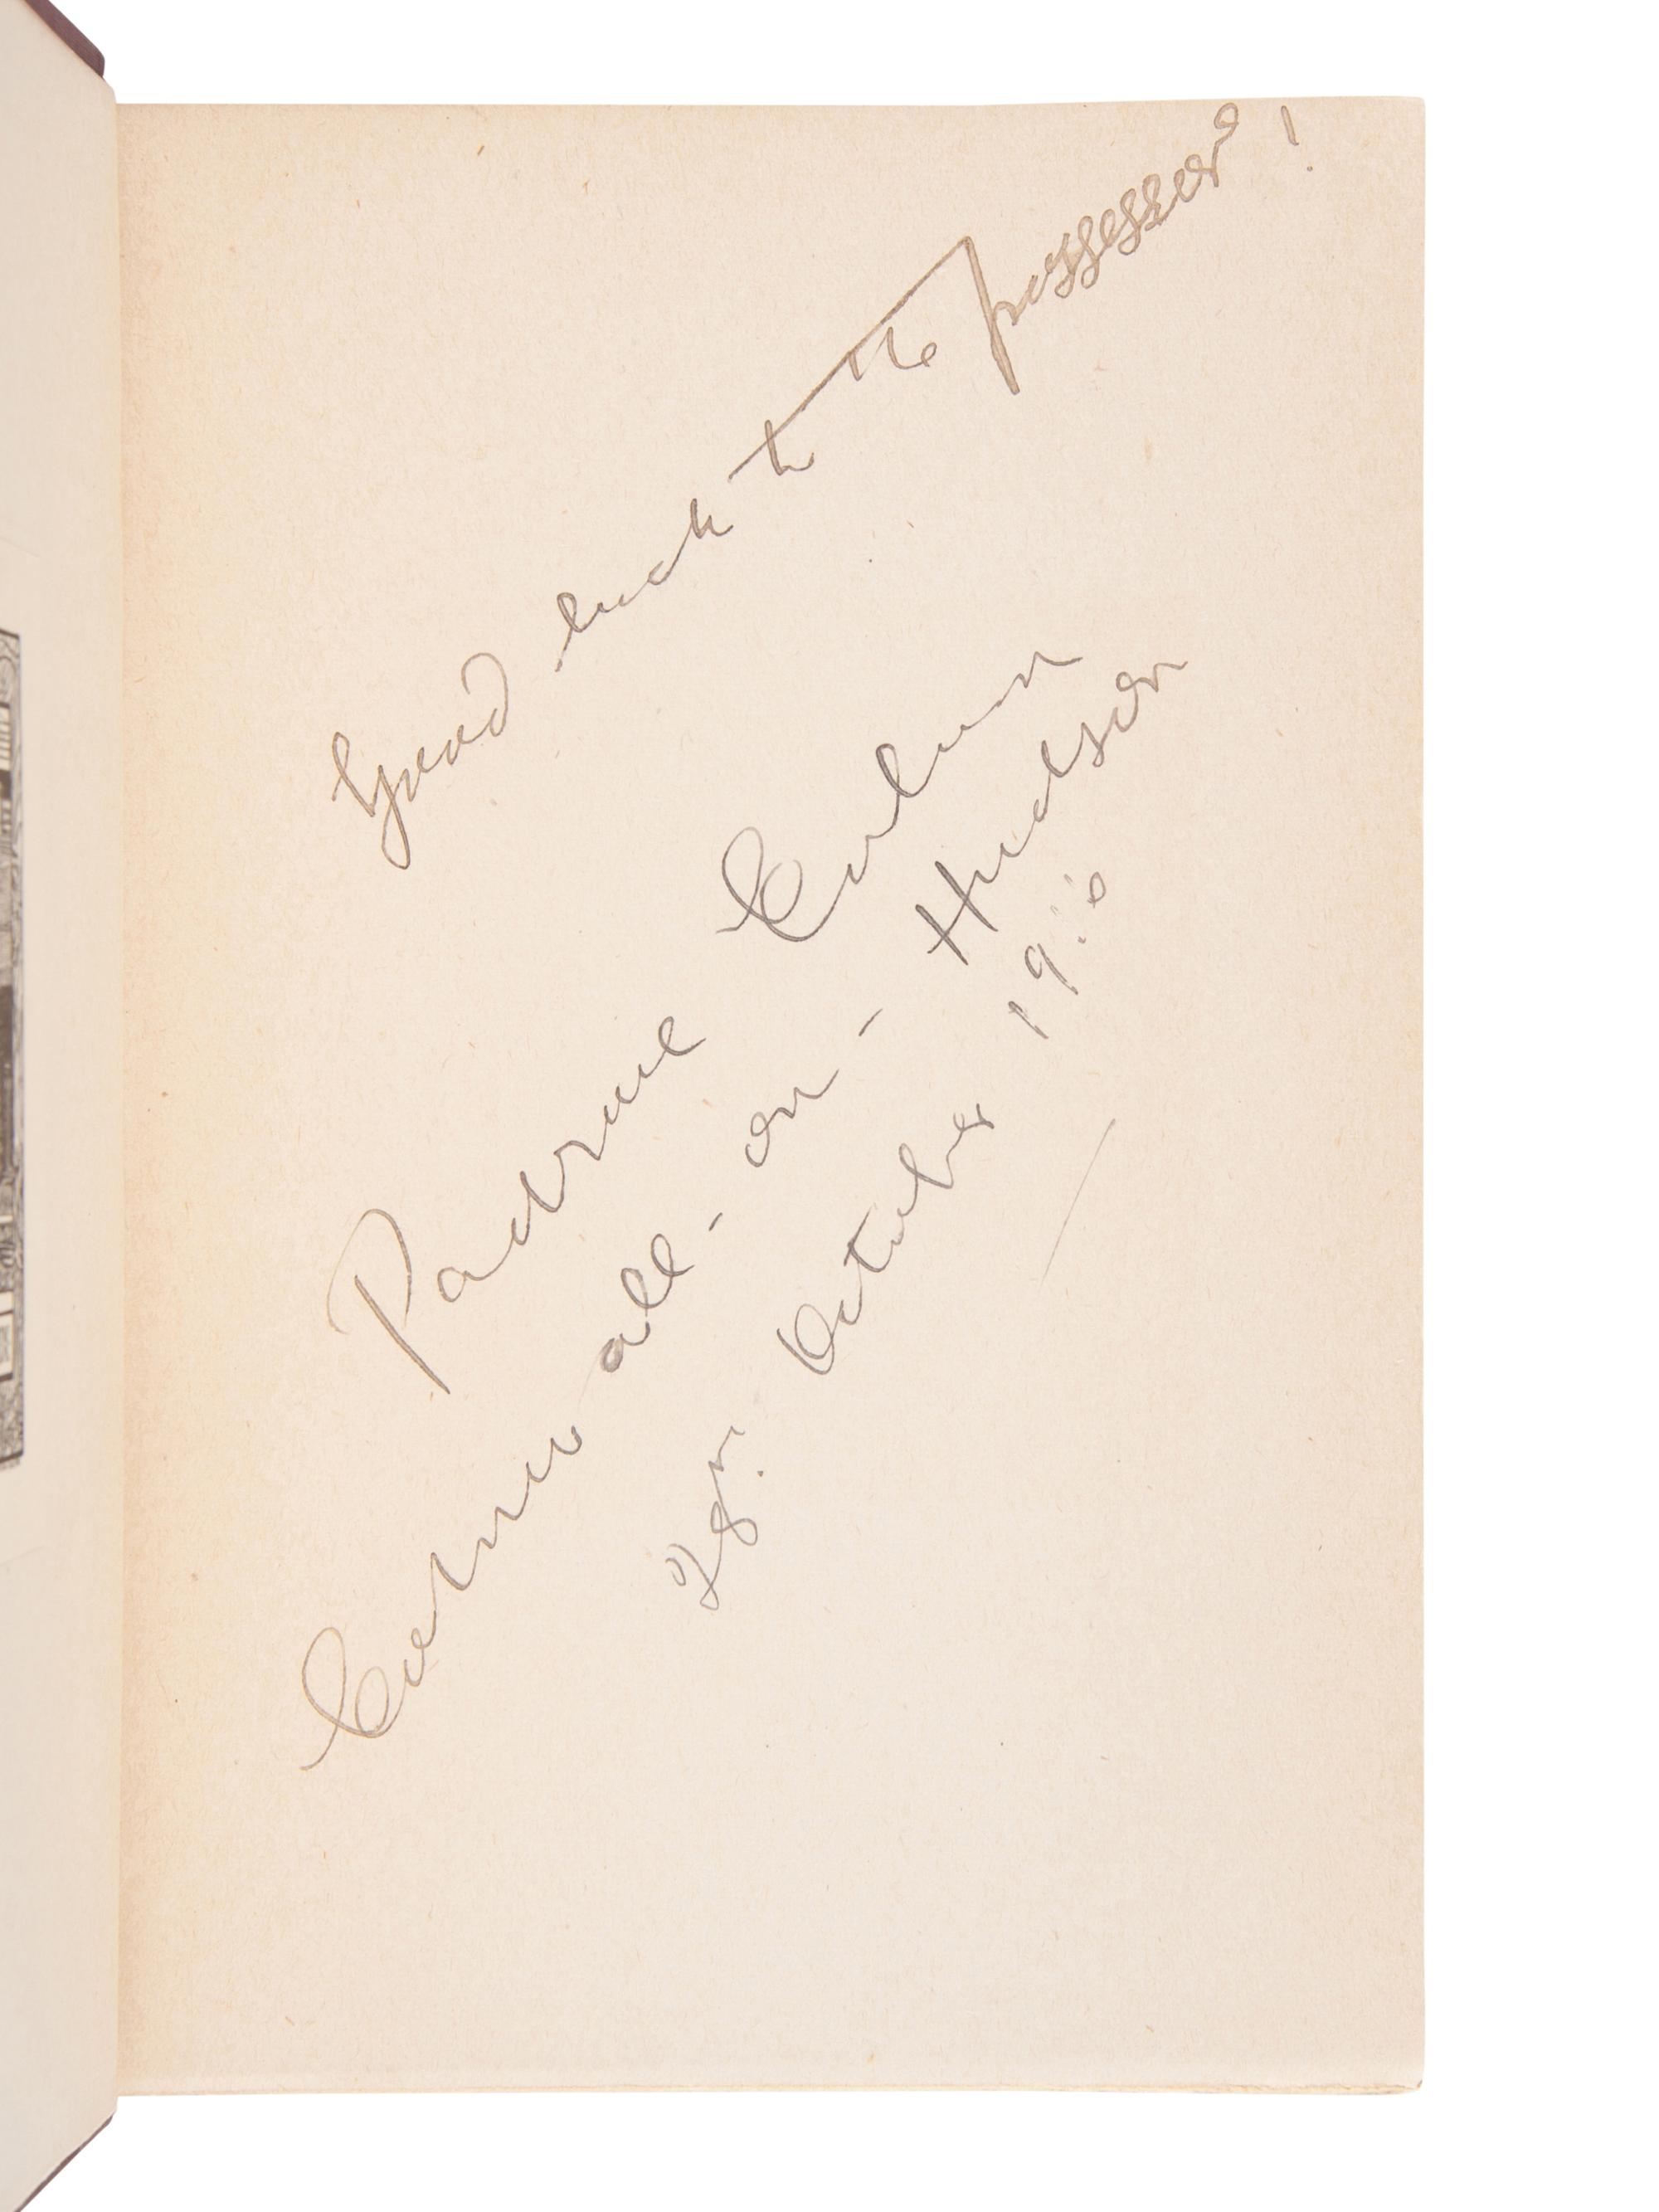 Good luck to the possessor!
Padraic Colum
Cornwall-on-Hudson
28th. October